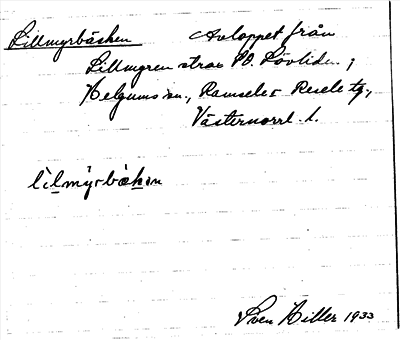 Lillmyrbäcken Avloppet från
Lillmyren strax SO. Lövliden,
Helgums sn., Ramsele o Resele tg.,
Västernorrl. l.
lìlmỳrbäkɩn
Sven Hiller 1933